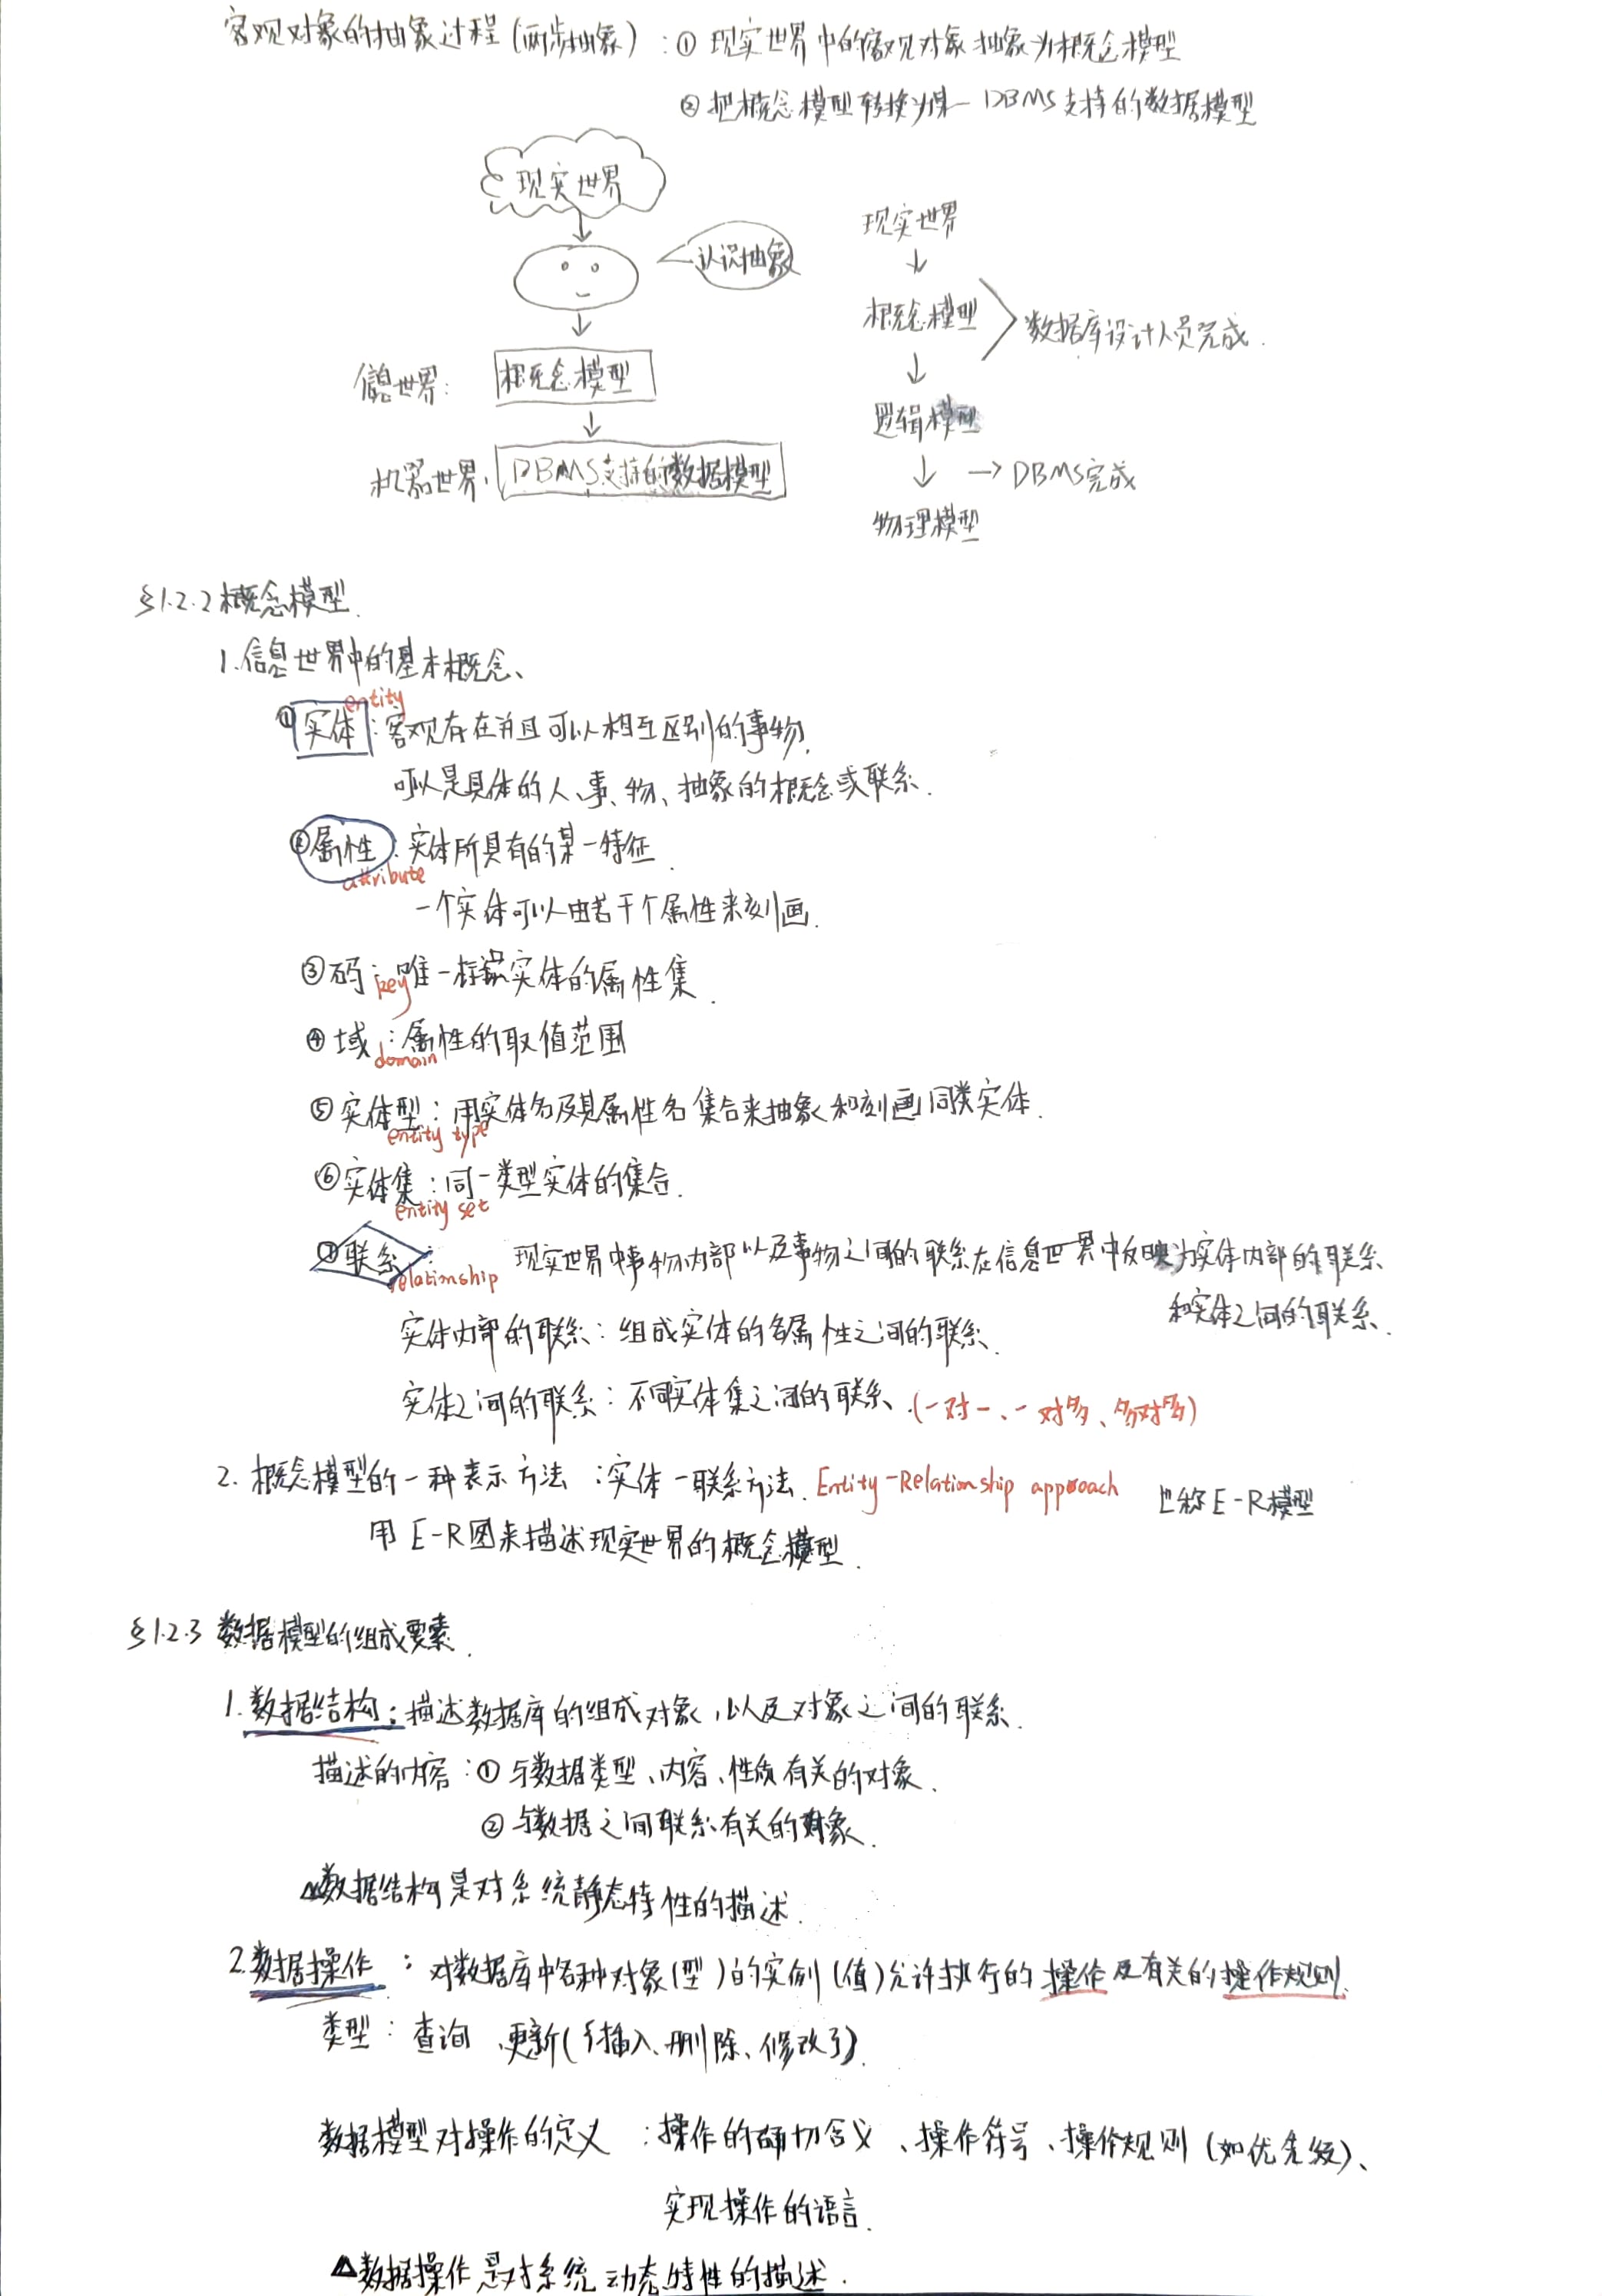 客观对象的抽象过程(两步抽象)：① 现实世界中的客观对象抽象为概念模型
② 把概念模型转换为某一DBMS支持的数据模型
现实世界
认识抽象
信息世界：
概念模型
机器世界：
DBMS支持的数据模型
现实世界
↓
概念模型
数据库设计人员完成.
↓
逻辑模型
↓ → DBMS完成
物理模型
§1.2.2 概念模型.
1.信息世界中的基本概念、
entity
①实体：客观存在并且可以相互区别的事物.
可以是具体的人、事、物、抽象的概念或联系.
②属性：实体所具有的某一特征.
attribute
一个实体可以由若干个属性来刻画.
③码：唯一标识实体的属性集.
key
④域：属性的取值范围
domain
⑤实体型：用实体名及其属性名集合来抽象和刻画同类实体.
entity type
⑥实体集：同一类型实体的集合.
entity set
⑦联系： 现实世界中事物内部以及事物之间的联系在信息世界中反映为实体内部的联系
relationship
和实体之间的联系.
实体内部的联系：组成实体的各属性之间的联系.
实体之间的联系：不同实体集之间的联系.(一对一、一对多、多对多)
2. 概念模型的一种表示方法：实体－联系方法. Entity-Relationship approach 也称E-R模型
用E-R图来描述现实世界的概念模型.
§1.2.3 数据模型的组成要素.
1.数据结构：描述数据库的组成对象，以及对象之间的联系.
描述的内容：① 与数据类型、内容、性质有关的对象.
② 与数据之间联系有关的对象.
△数据结构是对系统静态特性的描述.
2.数据操作：对数据库中各种对象(型)的实例(值)允许执行的操作及有关的操作规则.
类型：查询、更新({插入、删除、修改}).
数据模型对操作的定义：操作的确切含义、操作符号、操作规则(如优先级)、
实现操作的语言.
△数据操作是对系统动态特性的描述.